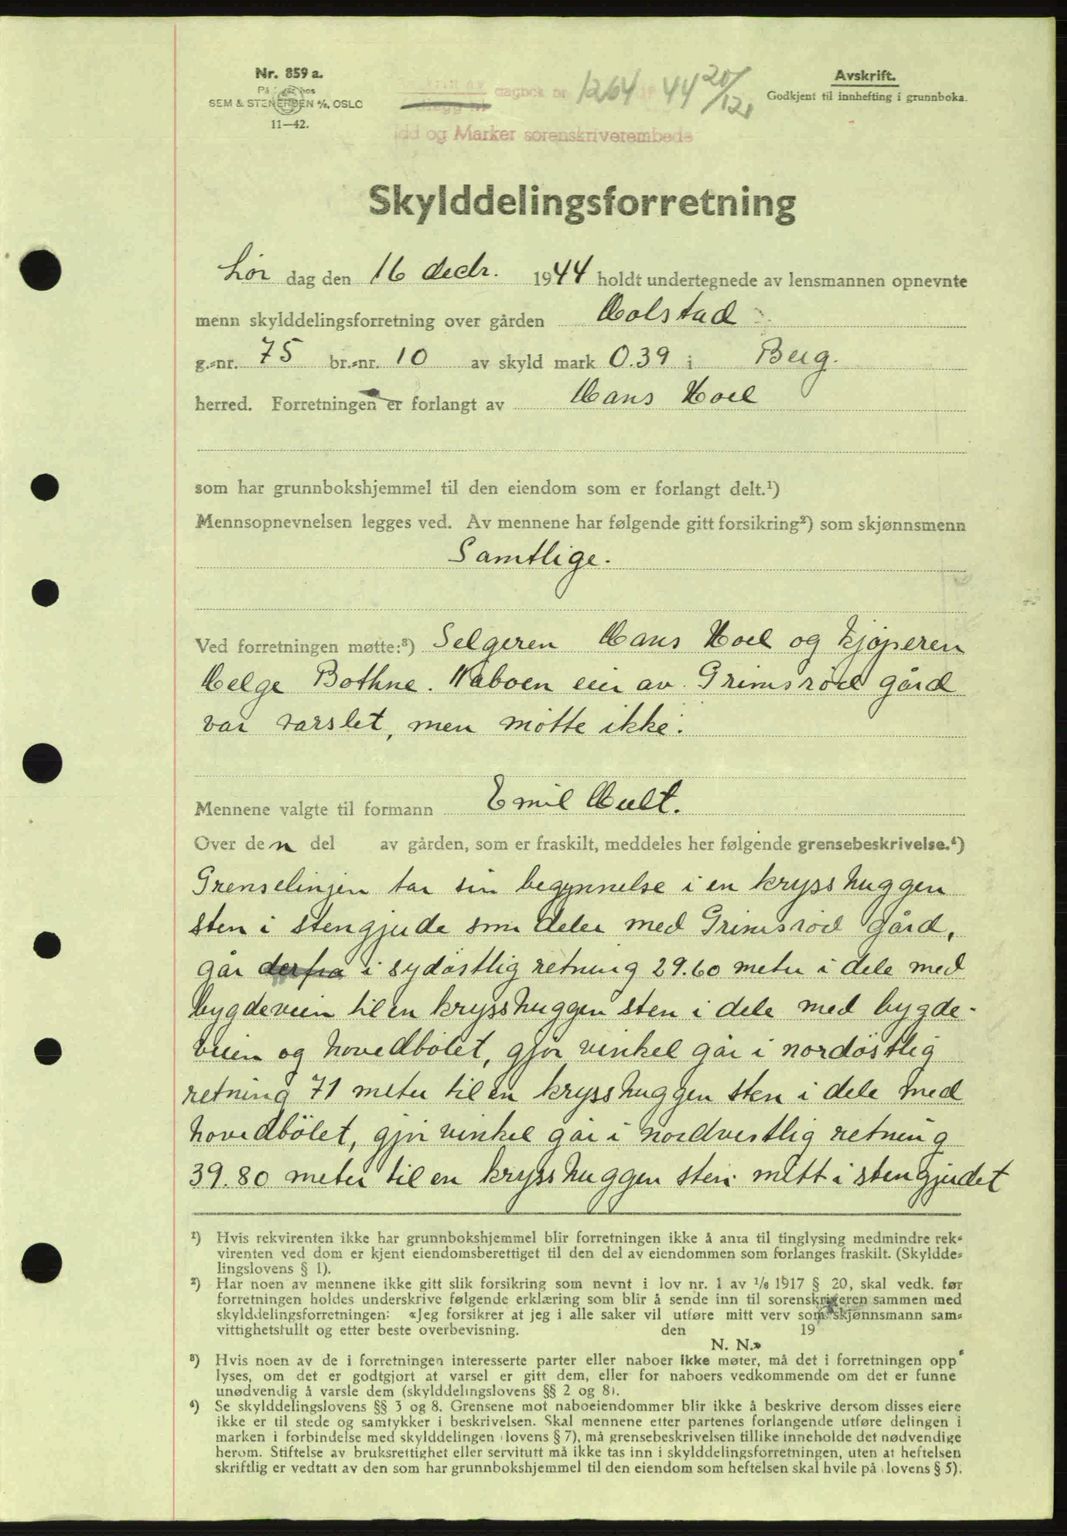 Nr. 859 a.
SEM & STENERSEN A/S, OSLO
11—42.
dagbok nr. 1264 1944 20/12.
Idd og Marker sorenskriverembede
Avskrift.
Godkjent til innhefting i grunnboka.
Skylddelingsforretning
Lør dag den 16 decbr. 1944 holdt undertegnede av lensmannen opnevnte
menn skylddelingsforretning over gården Holstad
g.-nr. 75 br.-nr. 10 av skyld mark 0.39 i Berg.
herred. Forretningen er forlangt av Hans Hoel
som har grunnbokshjemmel til den eiendom som er forlangt delt.¹)
Mennsopnevnelsen legges ved. Av mennene har følgende gitt forsikring²) som skjønnsmenn
Samtlige.
Ved forretningen møtte:³) Selgeren Hans Hoel og kjøperen
Helge Bothne. Naboen eier av Grimsrød gård
var varslet, men møtte ikke.
Mennene valgte til formann Emil Hult.
Over den del av gården, som er fraskilt, meddeles her følgende grensebeskrivelse.⁴)
Grenselinjen tar sin begynnelse i en krysshuggen
sten i stengjude som deler med Grimsrød gård,
går derfra i sydøstlig retning 29.60 meter i dele med
bygdeveien til en krysshuggen sten i dele med bygde-
veien og hovedbølet, gjør vinkel går i nordøstlig
retning 71 meter til en krysshuggen sten i dele med
hovedbölet, gjør vinkel går i nordvestlig retning
39.80 meter til en krysshuggen sten mitt i stengjudet
¹) Hvis rekvirenten ikke har grunnbokshjemmel blir forretningen ikke å anta til tinglysing medmindre rek-
virenten ved dom er kjent eiendomsberettiget til den del av eiendommen som forlanges fraskilt. (Skyldde-
lingslovens § 1).
²) Har noen av mennene ikke gitt slik forsikring som nevnt i lov nr. 1 av 1/6 1917 § 20, skal vedk. før
forretningen holdes underskrive følgende erklæring som blir å sende inn til sorenskriveren sammen med
skylddelingsforretningen: «Jeg forsikrer at jeg i alle saker vil utføre mitt verv som skjønnsmann sam-
vittighetsfullt og etter beste overbevisning. den 19
N. N.»
³) Hvis noen av de i forretningen interesserte parter eller naboer ikke møter, må det i forretningen opp
lyses, om det er godtgjort at varsel er gitt dem, eller for naboers vedkommende om det er funnet
unødvendig å varsle dem (skylddelingslovens §§ 2 og 8).
⁴) Se skylddelingslovens §§ 3 og 8. Grensene mot naboeiendommer blir ikke å beskrive dersom disses eiere
ikke er til stede og samtykker i beskrivelsen. Skal mennene etter partenes forlangende utføre delingen i
marken i forbindelse med skylddelingen (lovens § 7), må grensebeskrivelsen tillike inneholde det nødvendige
herom. Stiftelse av bruksrettighet eller servitutt må ikke tas inn i skylddelingsforretningen, uten at heftelsen
skriftlig er vedtatt av den som har grunnbokshjemmel til den eiendom som heftelsen skal hvile på (lovens § 5).